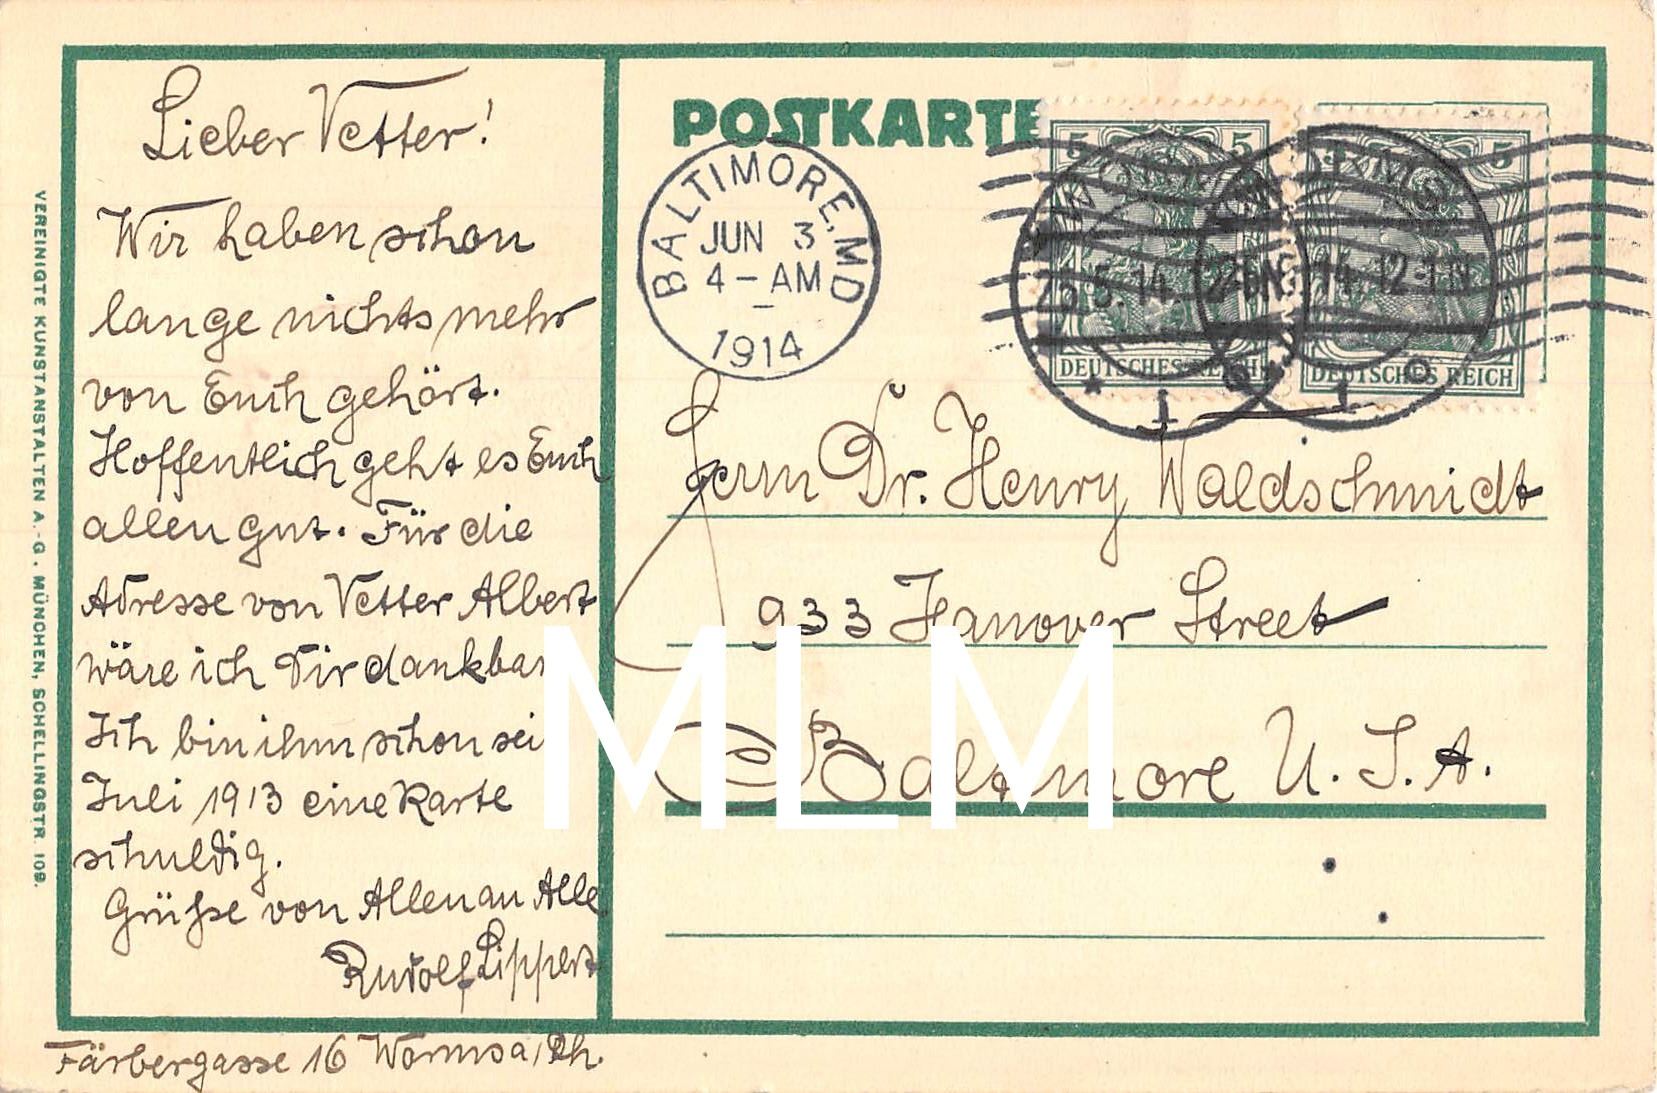 Lieber Vetter!
Wir haben schon
lange nichts mehr
von Euch gehört.
Hoffentlich geht es Euch
allen gut. Für die
Adresse von Vetter Albert
wäre ich Dir dankbar
Ich bin ihm schon sei
Juli 1913 eine Karte
schuldig.
Grüße von Allen an Alle
Rudolf Lippert
Färbergasse 16 Worms a/Rh.
VEREINIGTE KUNSTANSTALTEN A.-G. MÜNCHEN, SCHELLINGSTR. 109.
POSTKARTE
BALTIMORE, MD
JUN 3
4-AM
1914
5 5
DEUTSCHES REICH
5 5
DEUTSCHES REICH
5.14. 12-1N
14. 12-1N
* 1
1
Herrn Dr. Henry Waldschmidt
933 Hanover Street
Baltimore U.S.A.
MLM